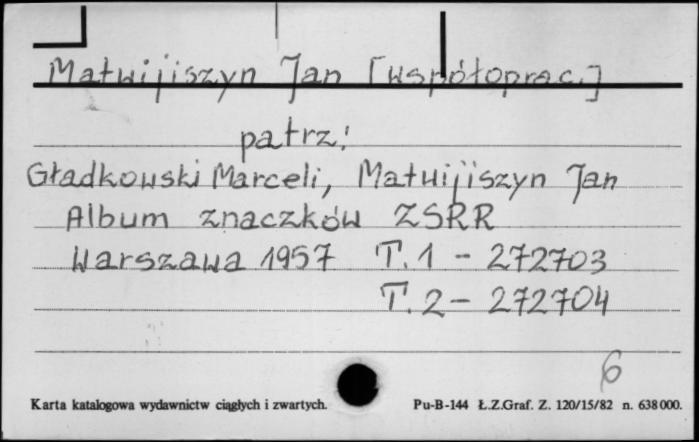 Matwijiszyn Jan [współoprac.]
patrz:
Gładkowski Marceli, Matwijiszyn Jan
Album znaczków ZSRR
Warszawa 1957 T.1 - 272703
T.2 - 272704
6
Karta katalogowa wydawnictw ciągłych i zwartych. Pu-B-144 Ł.Z.Graf. Z. 120/15/82 n. 638000.